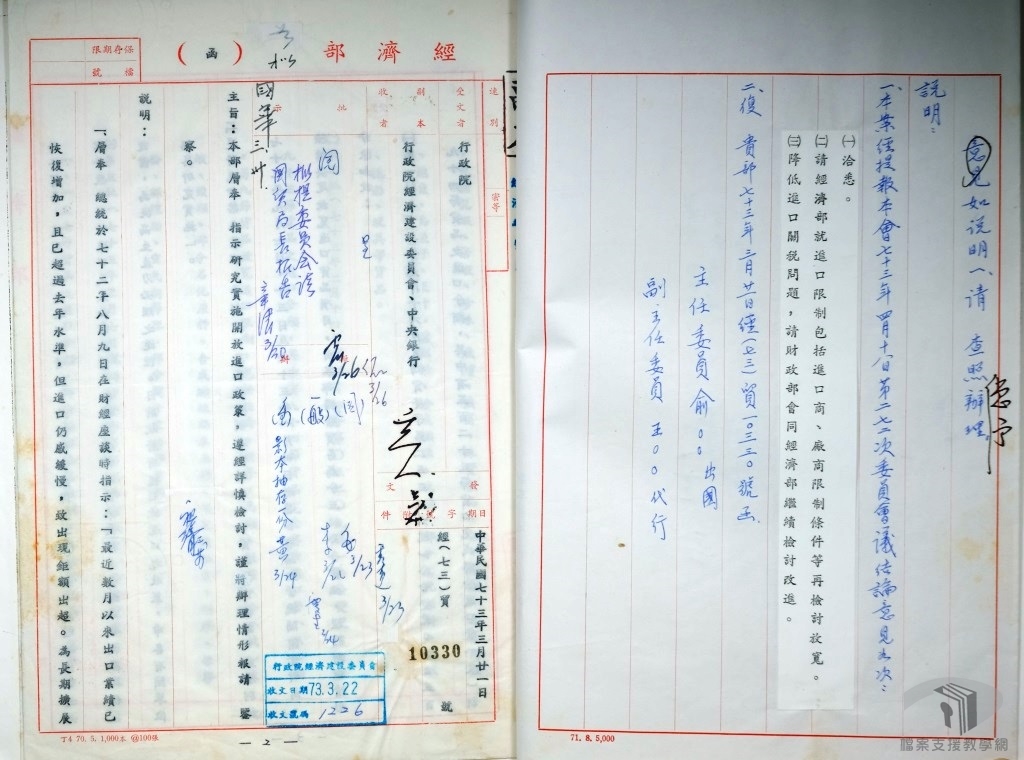 說明：
意見如說明一、請 查照辦理。
一、本案經提報本會七十三年四月十八日第二七二次委員會議結論意見如次：
㈠洽悉。
㈡請經濟部就進口限制包括進口商、廠商限制條件等再檢討放寬。
㈢降低進口關稅問題，請財政部會同經濟部繼續檢討改進。
二、復 貴部七十三年三月廿一日經(七三)貿一〇三三〇號函。
主任委員 俞〇〇 出國
副主任委員 王〇〇 代行
71. 8. 5,000
檔案支援教學網
經濟部（函）
保存期限
檔號
速別
密等
受文者
行政院
副本
收者
行政院經濟建設委員會、中央銀行
批示
發文
日期
字號
附件
中華民國七十三年三月廿一日
經(七三)貿
10330
號
閱
呈
3/26
影本抽存一份 黃 3/24
3/23
主旨：本部層奉 指示研究實施開放進口政策，遵經詳慎檢討，謹將辦理情形報請 鑒
察。
說明：
一、層奉 總統於七十二年八月九日在財經座談時指示：「最近數月以來出口業績已
恢復增加，且已超過去年水準，但進口仍感緩慢，致出現鉅額出超。為長期擴展
行政院經濟建設委員會
收文日期 73.3.22
收文號碼 1226
T4 70. 5. 1,000本 @100張
— 2 —